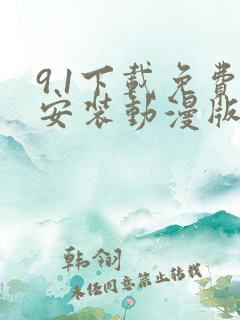 9.1下载免费
安装动漫版
韩翎
未经同意禁止转载